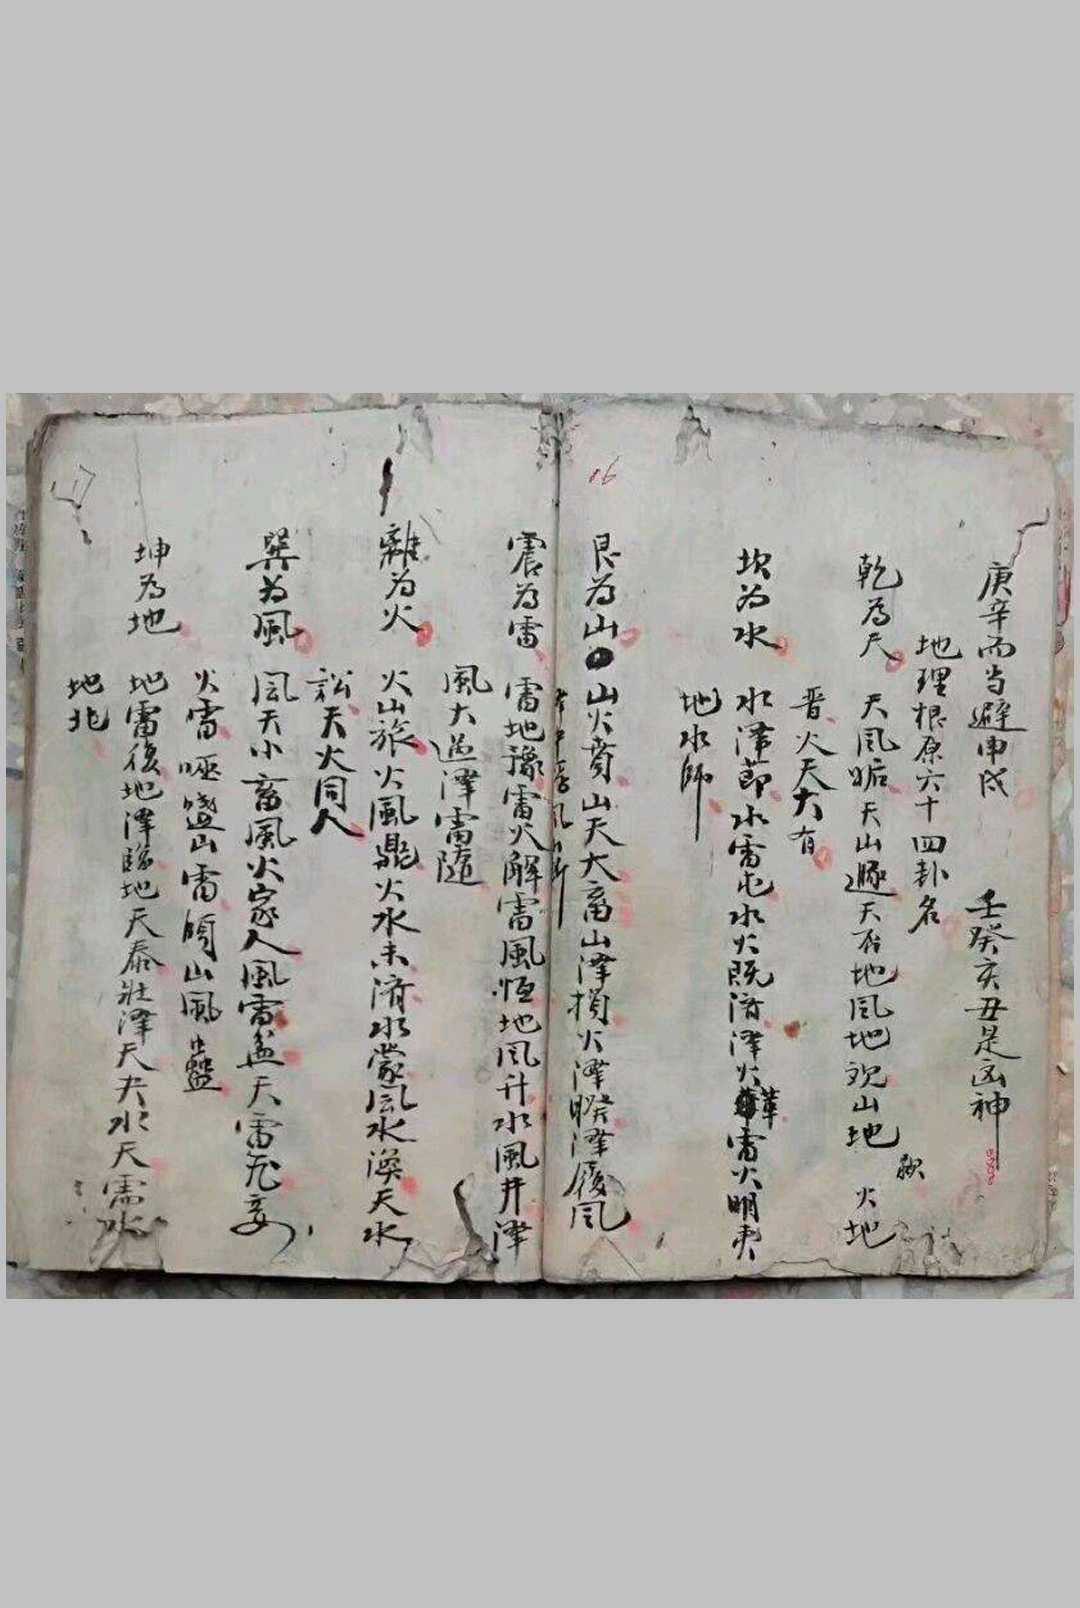 庚辛而当避申戌 壬癸亥丑是凶神
地理根原六十四卦名
乾為天 天風姤天山遯天否地風地观山地 火地
晋火天大有
坎為水 水泽節水雷屯水火既济泽火革雷火明夷
地水師
艮為山 山火賁山天大畜山泽損火泽睽泽履風
震為雷 雷地豫雷火解雷風恒地風升水風井泽
風大过泽雷隨
離為火 火山旅火風鼎火水未濟水蒙風水渙天水
訟天火同人
巽為風 風天小畜風火家人風雷益天雷无妄
火雷噬嗑山雷頤山風蠱
坤為地 地雷復地泽臨地天泰壯泽天夬水天需水
地北